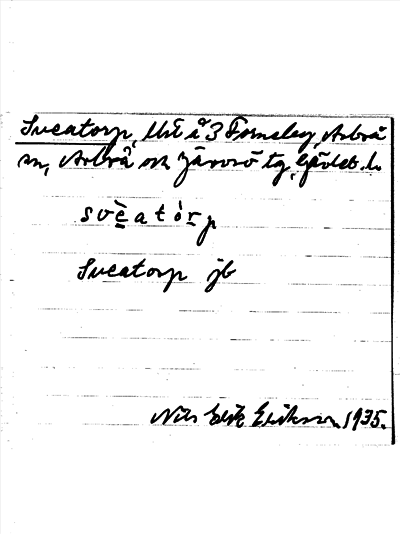 Sveatorp, lht å 3 Forneby, Arbrå
sn, Arbrå och Järvsö tg, Gävleb. l.
svèatòrp
Sveatorp jb
Nils Erik Eriksson 1935.